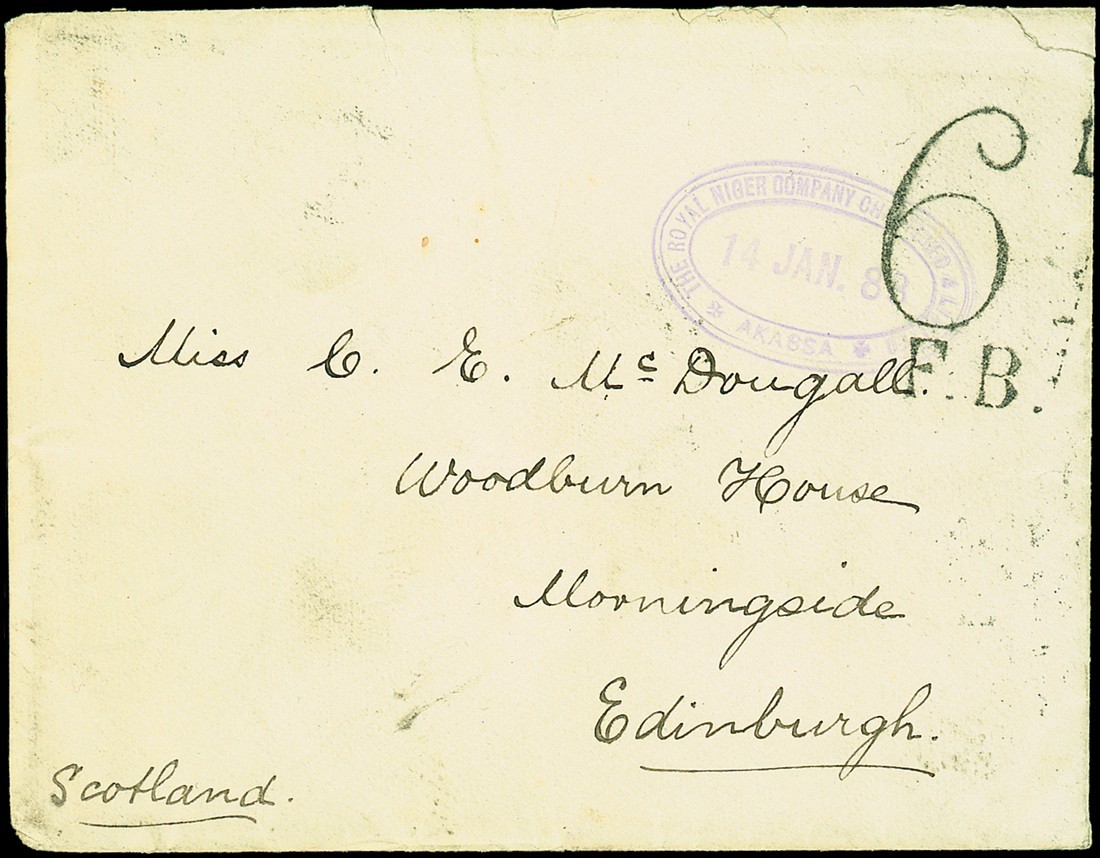 6
THE ROYAL NIGER COMPANY CHARTERED & L
14 JAN. 88
AKASSA
F.B.
Miss C. E. Mc Dougall.
Woodburn House
Morningside
Edinburgh.
Scotland.